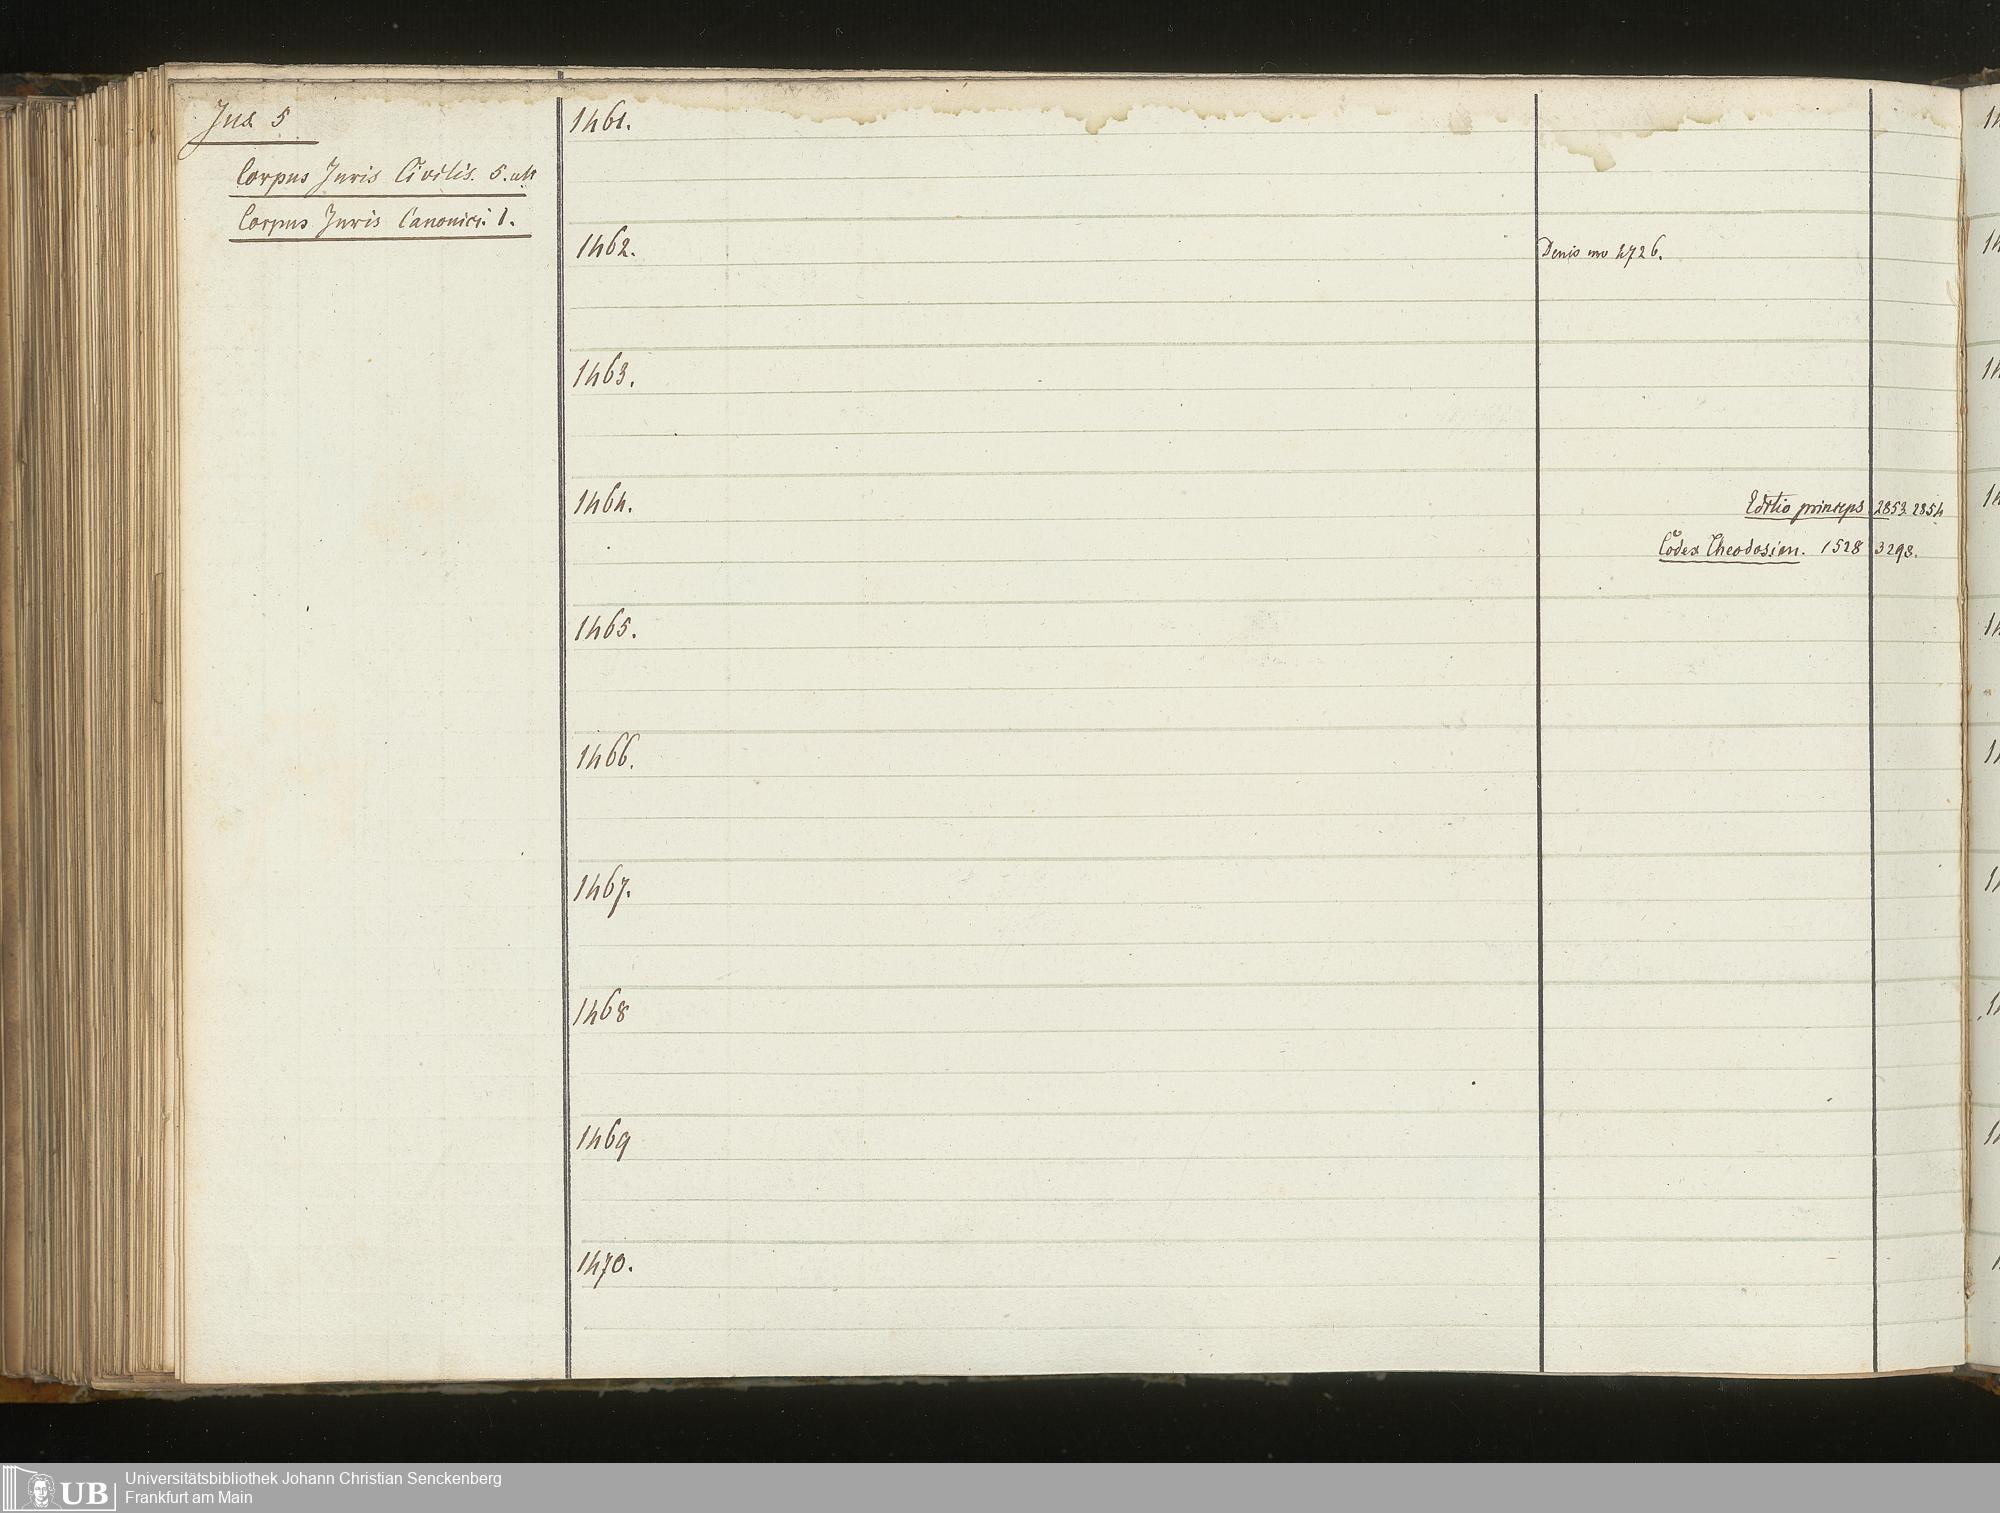 Jus 5
Corpus Juris Civilis. 5. ult
Corpus Juris Canonici. 1.
1461.
1462.
Denis no 4726.
1463.
1464.
Editio princeps 2853. 2854
Codex Theodosian. 1528 3298.
1465.
1466.
1467.
1468
1469
1470.
UB
Universitätsbibliothek Johann Christian Senckenberg
Frankfurt am Main